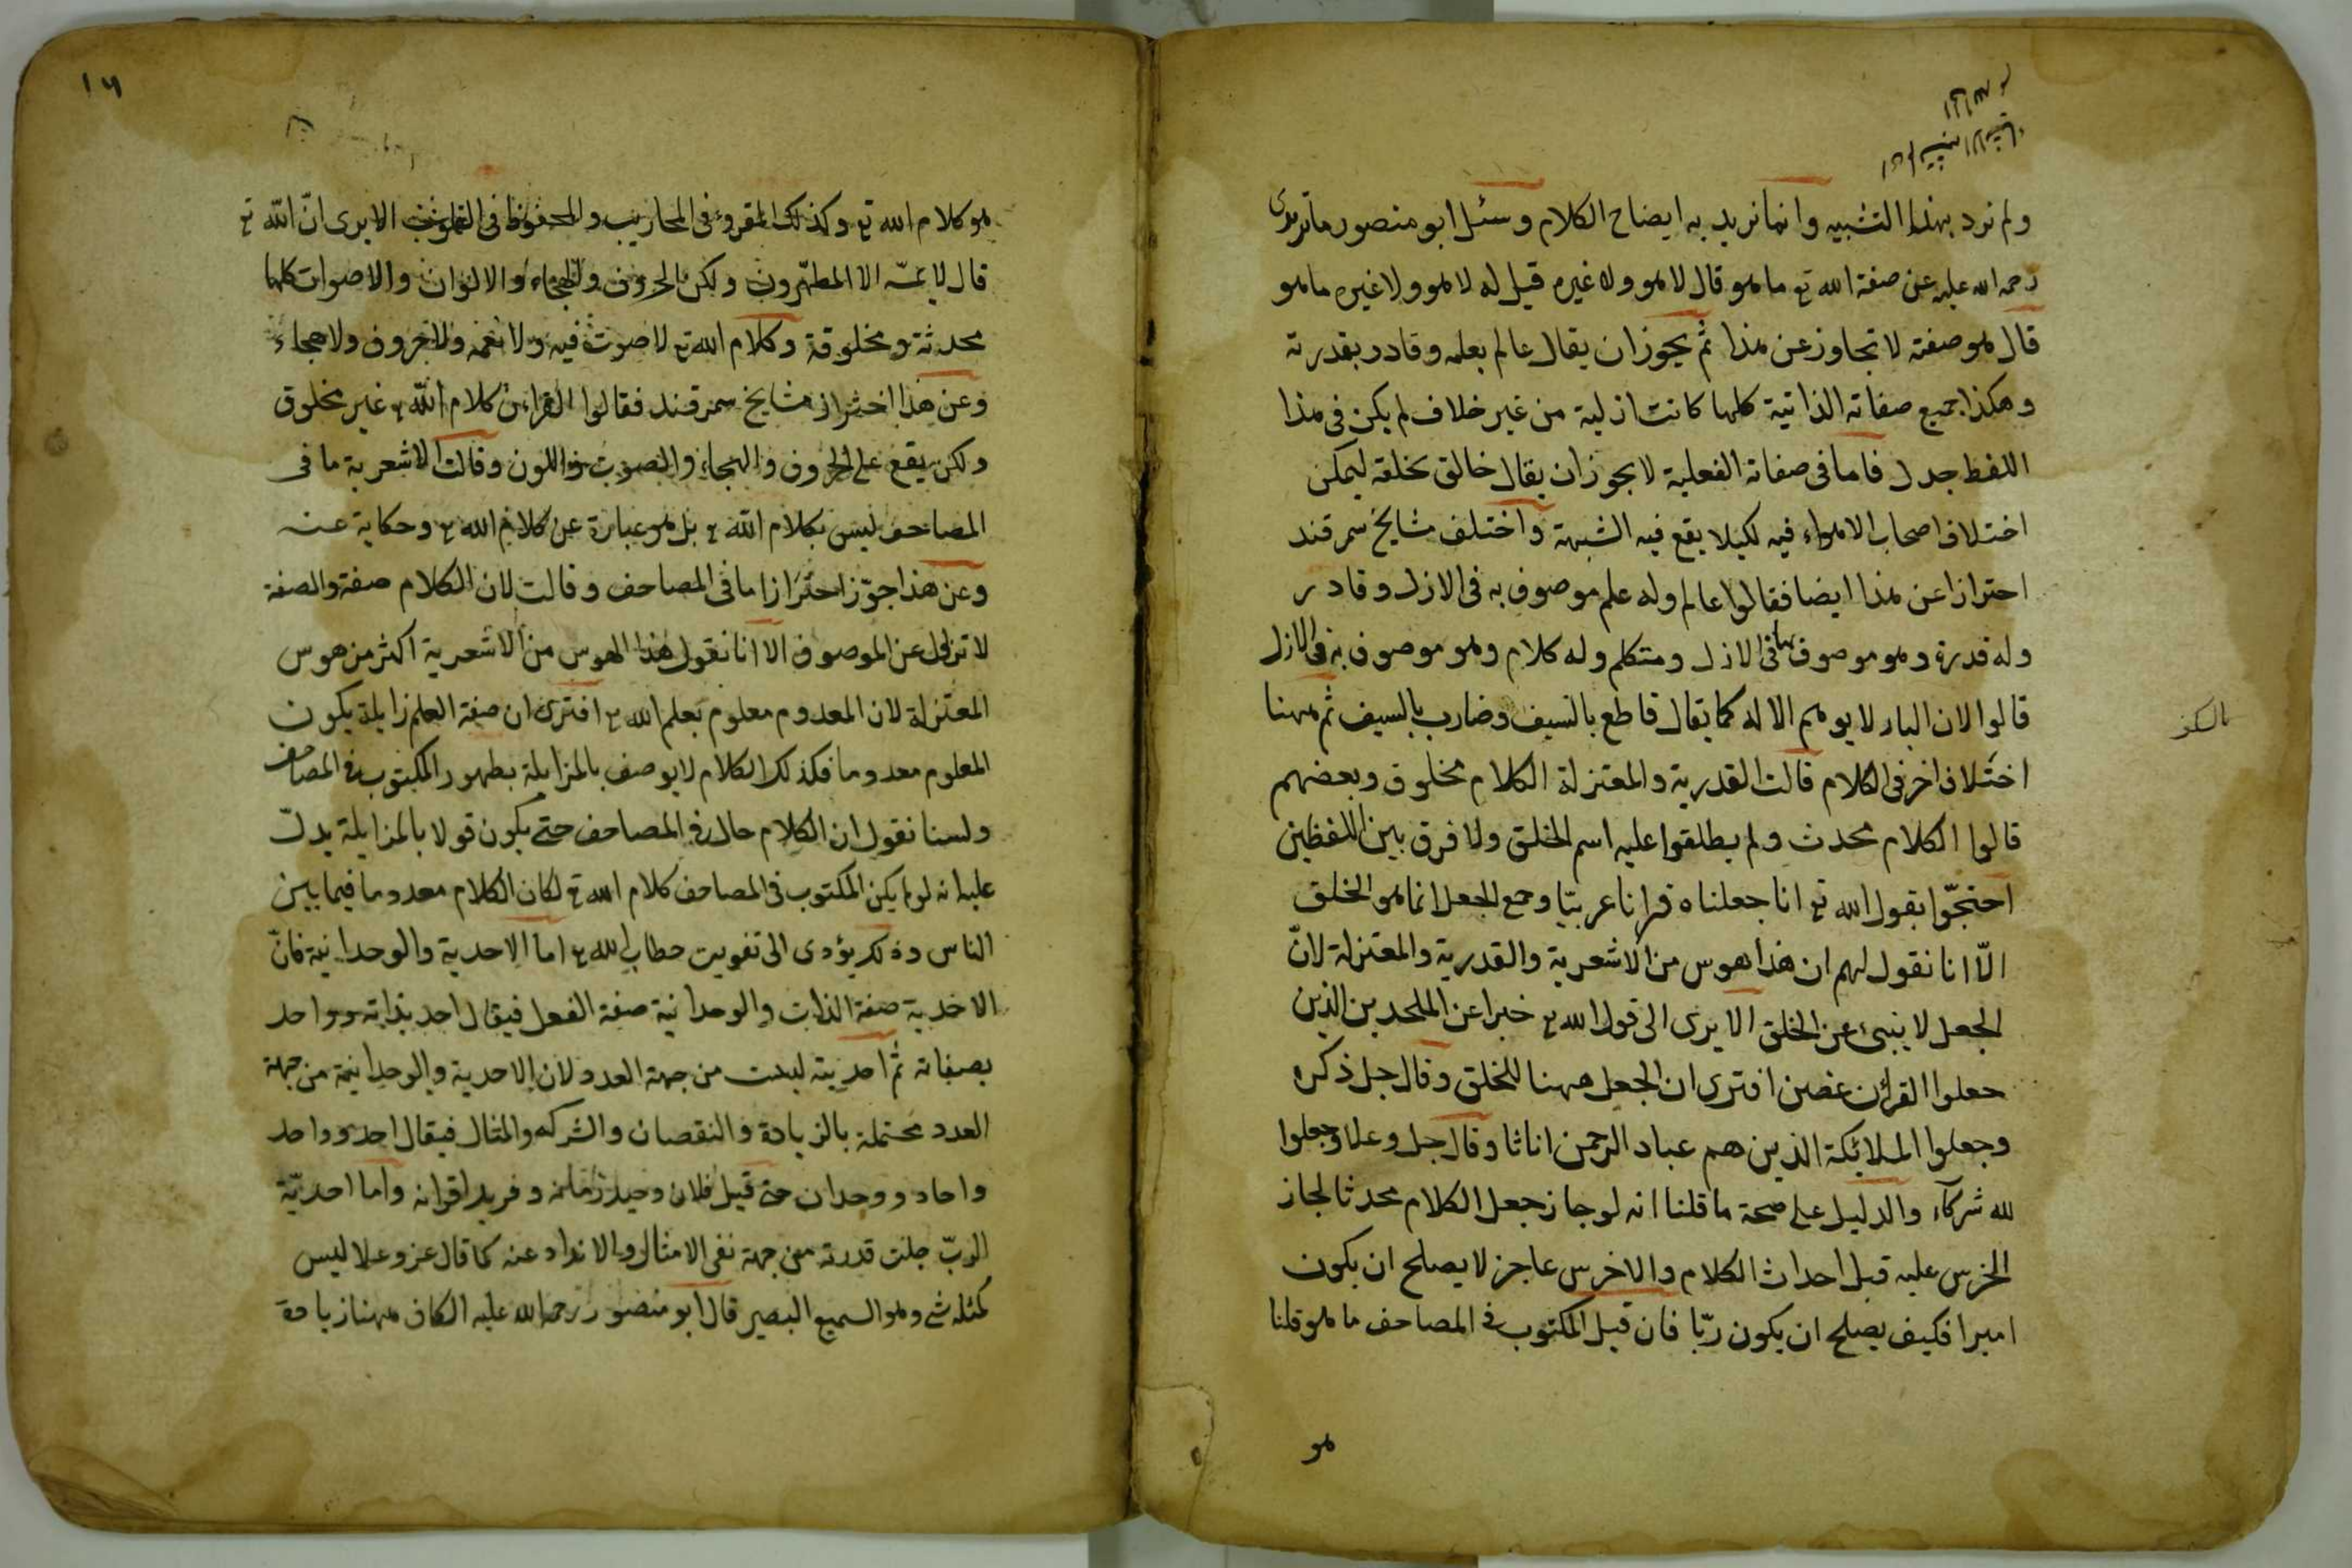 ولم نرد بهذا التشبيه وانما نريد به ايضاح الكلام وسئل ابو منصور ماتريدى
رحمه الله عليه عن صفة الله تع ما هو قال لا هو ولا غيره قيل له لا هو ولا غيره ما هو
قال هو صفته لا تجاوز عن هذا ثم يجوز ان يقال عالم بعلمه وقادر بقدرته
وهكذا جميع صفاته الذاتية كلها كانت ازلية من غير خلاف لم يكن فى هذا
اللفظ جدل فاما فى صفاته الفعلية لا يجوز ان يقال خالق بخلقه ليمكن
اختلاف اصحاب الاهواء فيه لكيلا يقع فيه الشبهة واختلف مشايخ سمرقند
احترازا عن هذا ايضا فقالوا عالم وله علم موصوف به فى الازل وقادر
وله قدرة وهو موصوف بها فى الازل ومتكلم وله كلام وهو موصوف به فى الازل
قالوا لان الباء لا يوهم الاله كما يقال قاطع بالسيف وضارب بالسيف ثم ههنا
اختلاف اخر فى الكلام قالت القدرية والمعتزلة الكلام مخلوق وبعضهم
قالوا الكلام محدث ولم يطلقوا عليه اسم الخلق ولا فرق بين اللفظين
احتجّوا بقول الله تع انا جعلناه قرانا عربيّا وجمع الجعل انما هو الخلق
الّا انا نقول لهم ان هذا هوس من الاشعرية والقدرية والمعتزلة لانّ
الجعل لا ينبئ عن الخلق الا يرى الى قول الله تع خبرا عن الملحدين الذين
جعلوا القرأن عضين افترى ان الجعل ههنا للخلق وقال جل ذكره
وجعلوا الملائكة الذين هم عباد الرحمن اناثا وقال جل وعلا وجعلوا
لله شركآء والدليل على صحة ما قلنا انه لو جاز جعل الكلام محدثا لجاز
الخرس عليه قبل احداث الكلام والاخرس عاجز لا يصلح ان يكون
اميرا فكيف يصلح ان يكون ربّا فان قيل المكتوب فى المصاحف ما هو قلنا
هو
١٦
هو كلام الله تع وكذلك المقروء فى المحاريب والمحفوظ فى القلوب الا يرى انّ الله تع
قال لا يمسّه الا المطهّرون ولكن الحروف والهجاء والالوان والاصوات كلها
محدثة ومخلوقة وكلام الله تع لا صوت فيه ولا نغمه ولا حروف ولا هجاء
وعن هذا احترز مشايخ سمرقند فقالوا القران كلام الله تع غير مخلوق
ولكن يقع على الحروف والهجاء والصوت واللون وقالت الاشعرية ما فى
المصاحف ليس بكلام الله تع بل هو عبارة عن كلام الله تع وحكاية عنه
وعن هذا جوّز احترازا ما فى المصاحف وقالت لان الكلام صفة والصفة
لا تزل عن الموصوف الا انا نقول هذا الهوس من الاشعرية اكثر من هوس
المعتزلة لان المعدوم معلوم بعلم الله تع افترى ان صفة العلم زايلة يكون
المعلوم معدوما فكذلك الكلام لا يوصف بالمزايلة بظهور المكتوب فى المصاحف
ولسنا نقول ان الكلام حال فى المصاحف حتى يكون قولا بالمزايلة يدلّ
عليه انه لو لم يكن المكتوب فى المصاحف كلام الله تع لكان الكلام معدوما فيما بين
الناس وذلك يؤدى الى تفويت خطاب الله تع اما الاحدية والوحدانية فانّ
الاحدية صفة الذات والوحدانية صفة الفعل فيقال احد بذاته وواحد
بصفاته ثم احديته ليست من جهة العدد لان الاحدية والوحدانية من جهة
العدد محتملة بالزيادة والنقصان والشركه والمثال فيقال احد وواحد
واحاد ووحدان حتى قيل فلان وحيد زمانه وفريد اقرانه واما احديّة
الربّ جلت قدرته من جهة نفى الامثال والانداد عنه كما قال عز وعلا ليس
كمثله شئ وهو السميع البصير قال ابو منصور رحمه الله عليه الكاف ههنا زيادة